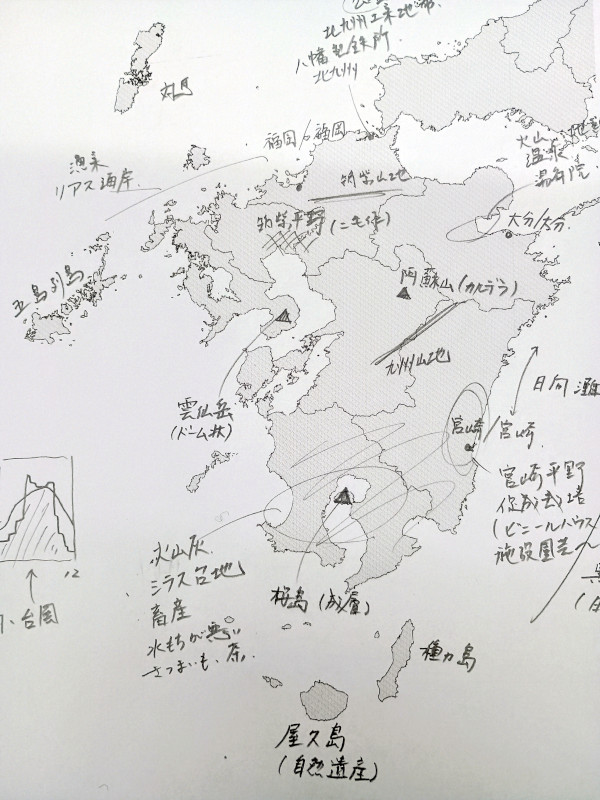 北九州工業地帯
八幡製鉄所
北九州
対馬
福岡/福岡
漁業
リアス海岸
筑紫山地
火山
温泉
湯布院
筑紫平野(二毛作)
大分/大分
五島列島
阿蘇山(カルデラ)
九州山地
日向灘
雲仙岳
(ドーム状)
宮崎/宮崎
宮崎平野
促成栽培
(ビニールハウス)
施設園芸
火山灰
シラス台地
畜産
水もちが悪い
さつまいも、茶
12
桜島(成層)
種カ島
屋久島
(自然遺産)